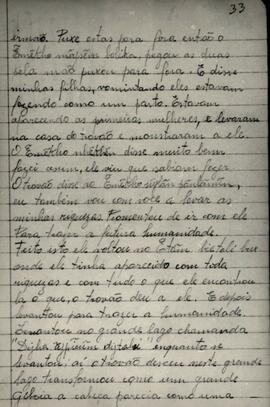 33
irmão. Puxe estas para fora então o
Emẽkho mãhsẽn bolika, pegou as duas
pela mão puxou para fora. E disse
minhas filhas, vomitando eles estavam
fazendo como um parto. Estavam
aparecendo as primeiras mulheres, e levaram
na casa do trovão e mostraram a ele.
O Emẽkho disse muito bem
fazei assim, ele viu que sabiam fazer.
O trovão disse ao Emẽkho
eu também vou com vocês a levar as
minhas riquezas. Prometeu de ir com ele
Para trazer a futura humanidade.
Feito isto ele voltou no
onde ele tinha aparecido com toda
riquezas e com tudo o que ele encontrou
lá o que, o trovão deu a ele. E depois
levantou para trazer a humanidade.
Levantou no grande lago chamanda
enquanto se
levantou aí o trovão desceu neste grande
lago transformou como um grande
Gibóia a cabeça parecia como uma